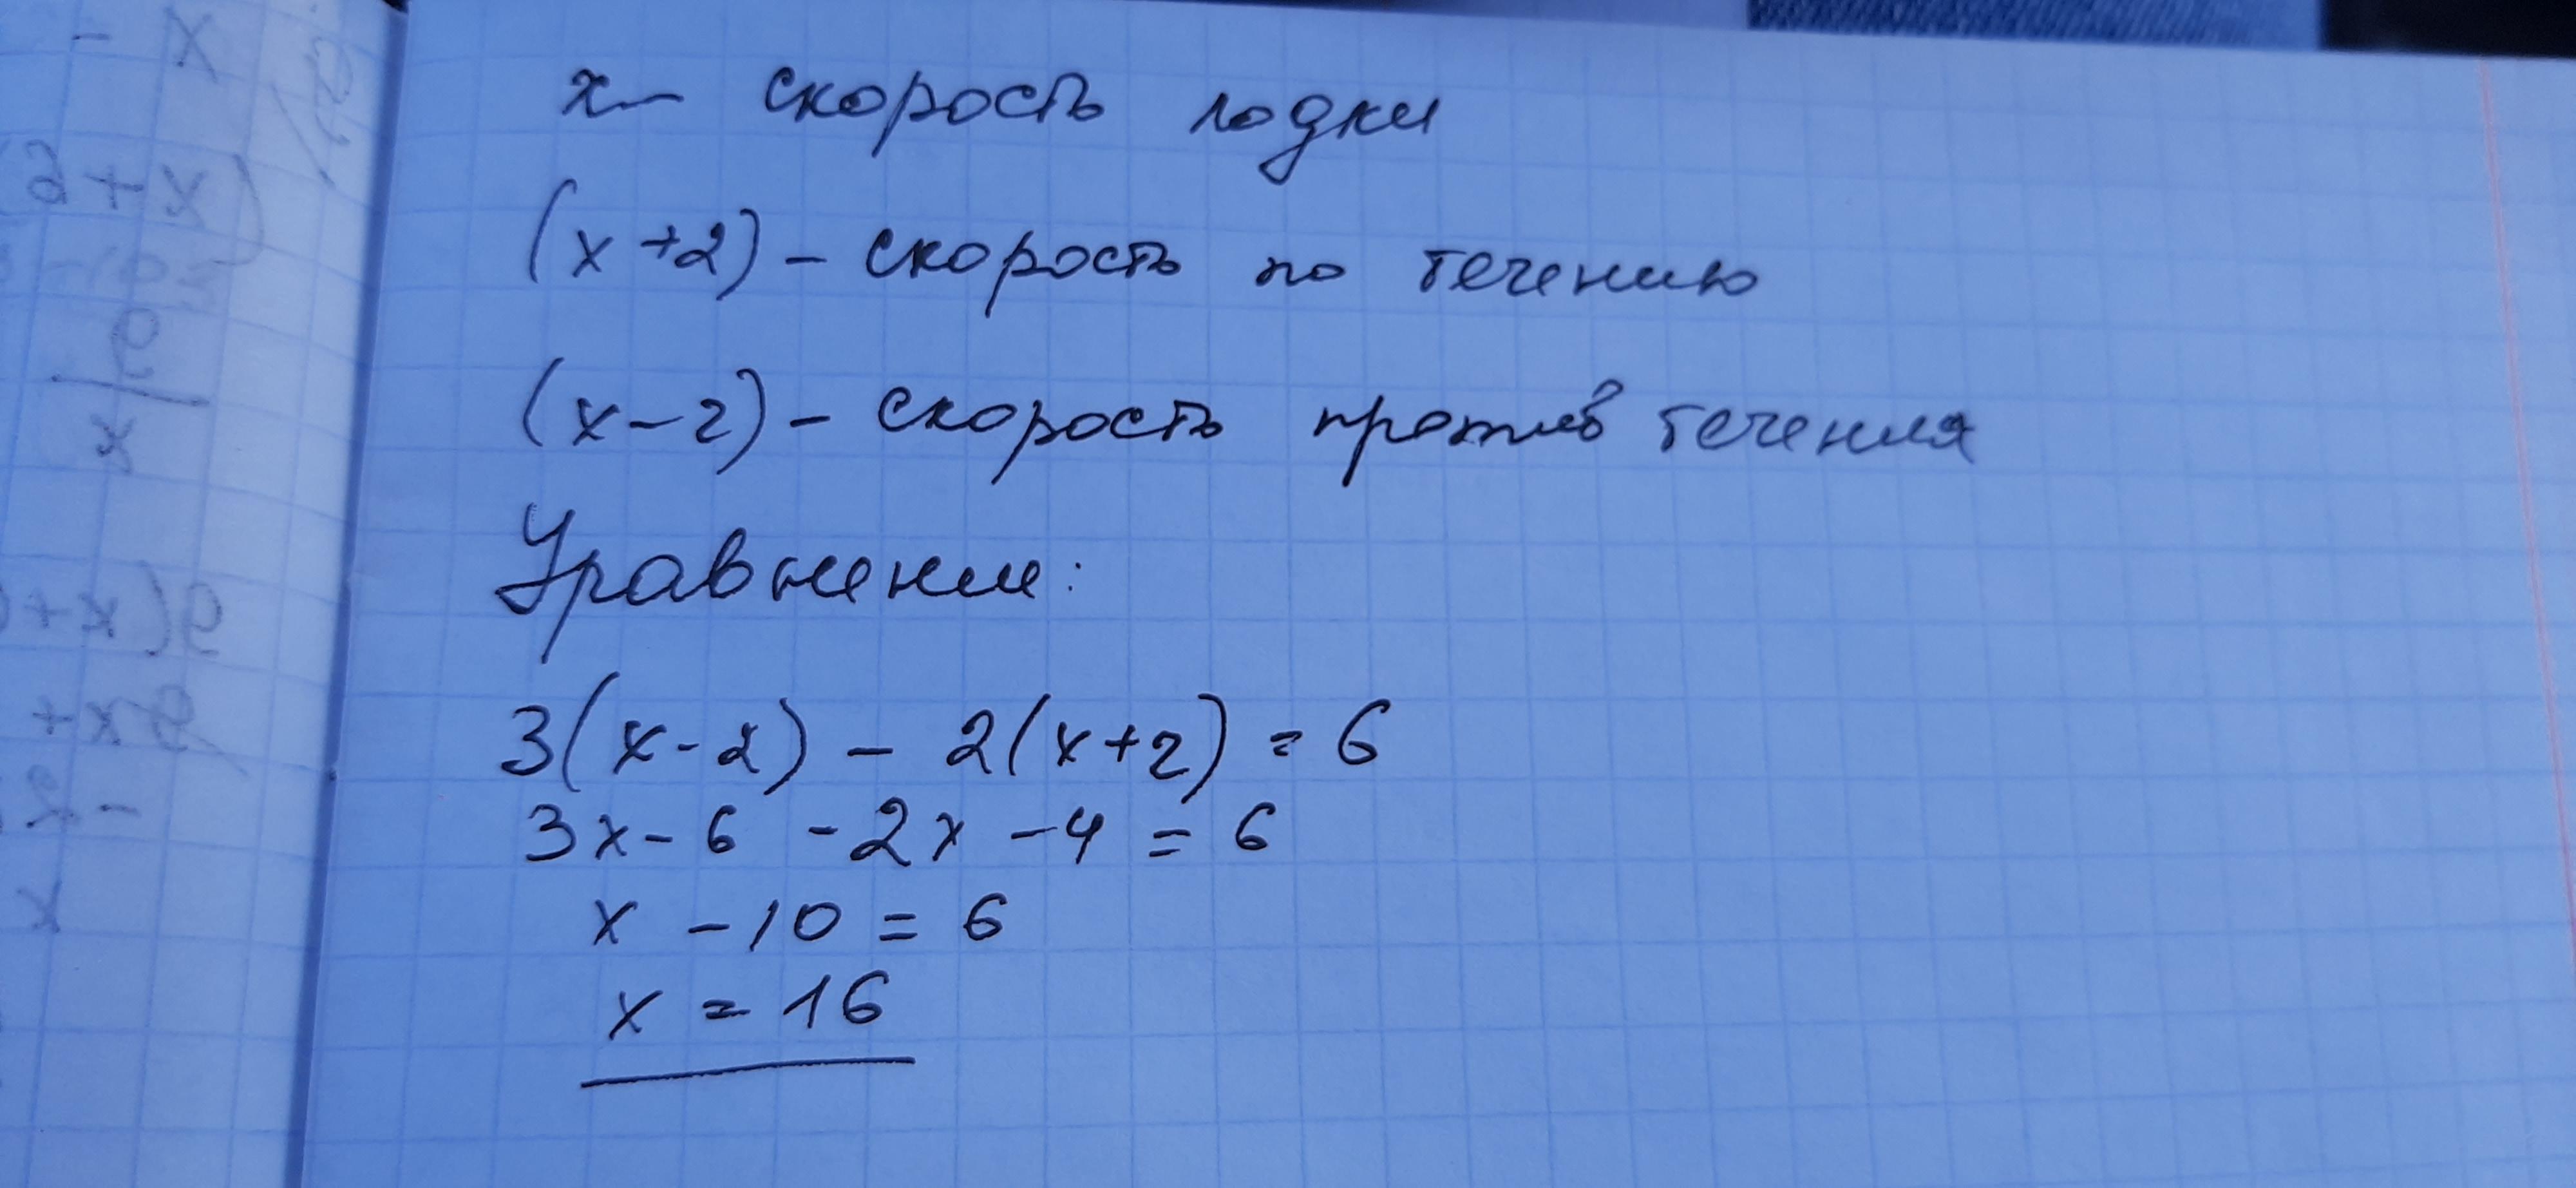 x – скорость лодки
(x+2) – скорость по течению
(x–2) – скорость против течения
Уравнение:
3(x-2) – 2(x+2) = 6
3x – 6 – 2x – 4 = 6
x – 10 = 6
x = 16